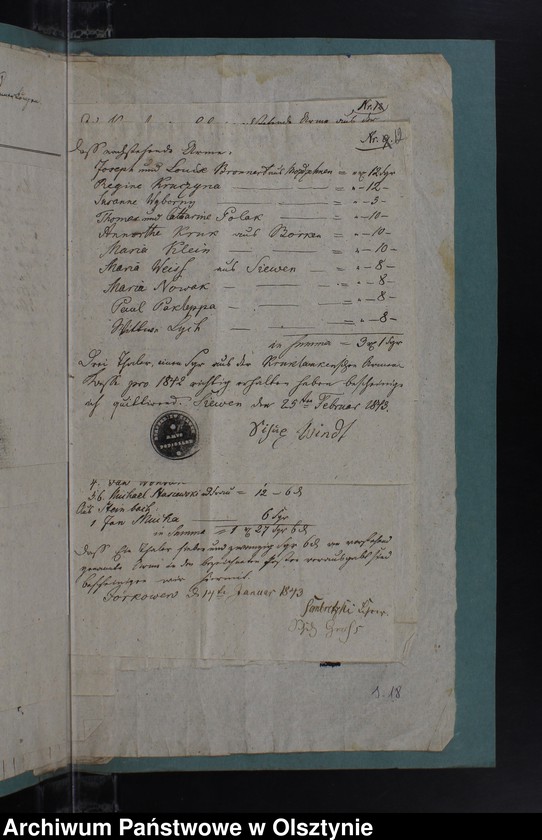 Nr. 12
daß nachstehende Arme.
Joseph und Louise Bronnert aus = 12 Sgr
Regine Kruczyna — 12 —
Susanne Wyborny — 5 —
Thomas und Catharine Polak — 10 —
Annorthe Kruk aus Borken = — 10 —
Maria Klein — 10 —
Maria Weiss aus Siewen = — 8 —
Maria Nowak — 8 —
Paul Pakleppa — 8 —
Wittwe Lych — 8 —
in Summa — 3 1 Sgr
Drei Thaler, einen Sgr aus der Kruklankenschen Armen
Kasse pro 1842 richtig erhalten haben bescheinige
ich quittirend. Siewen den 25ten Februar 1843.
Schulz Windt
Michael = 12 — 6
Aus Steinbach
1 Jan 6 Sgr
in Summa = 1 27 Sgr 6
daß Ein Thaler sieben und zwanzig Sgr 6 an vorstehend
genannte Arme in den bezeichneten Posten verausgabt sind
bescheinigen wir hiermit.
Jorkowen d 14te Januar 1843
1.18
Archiwum Państwowe w Olsztynie